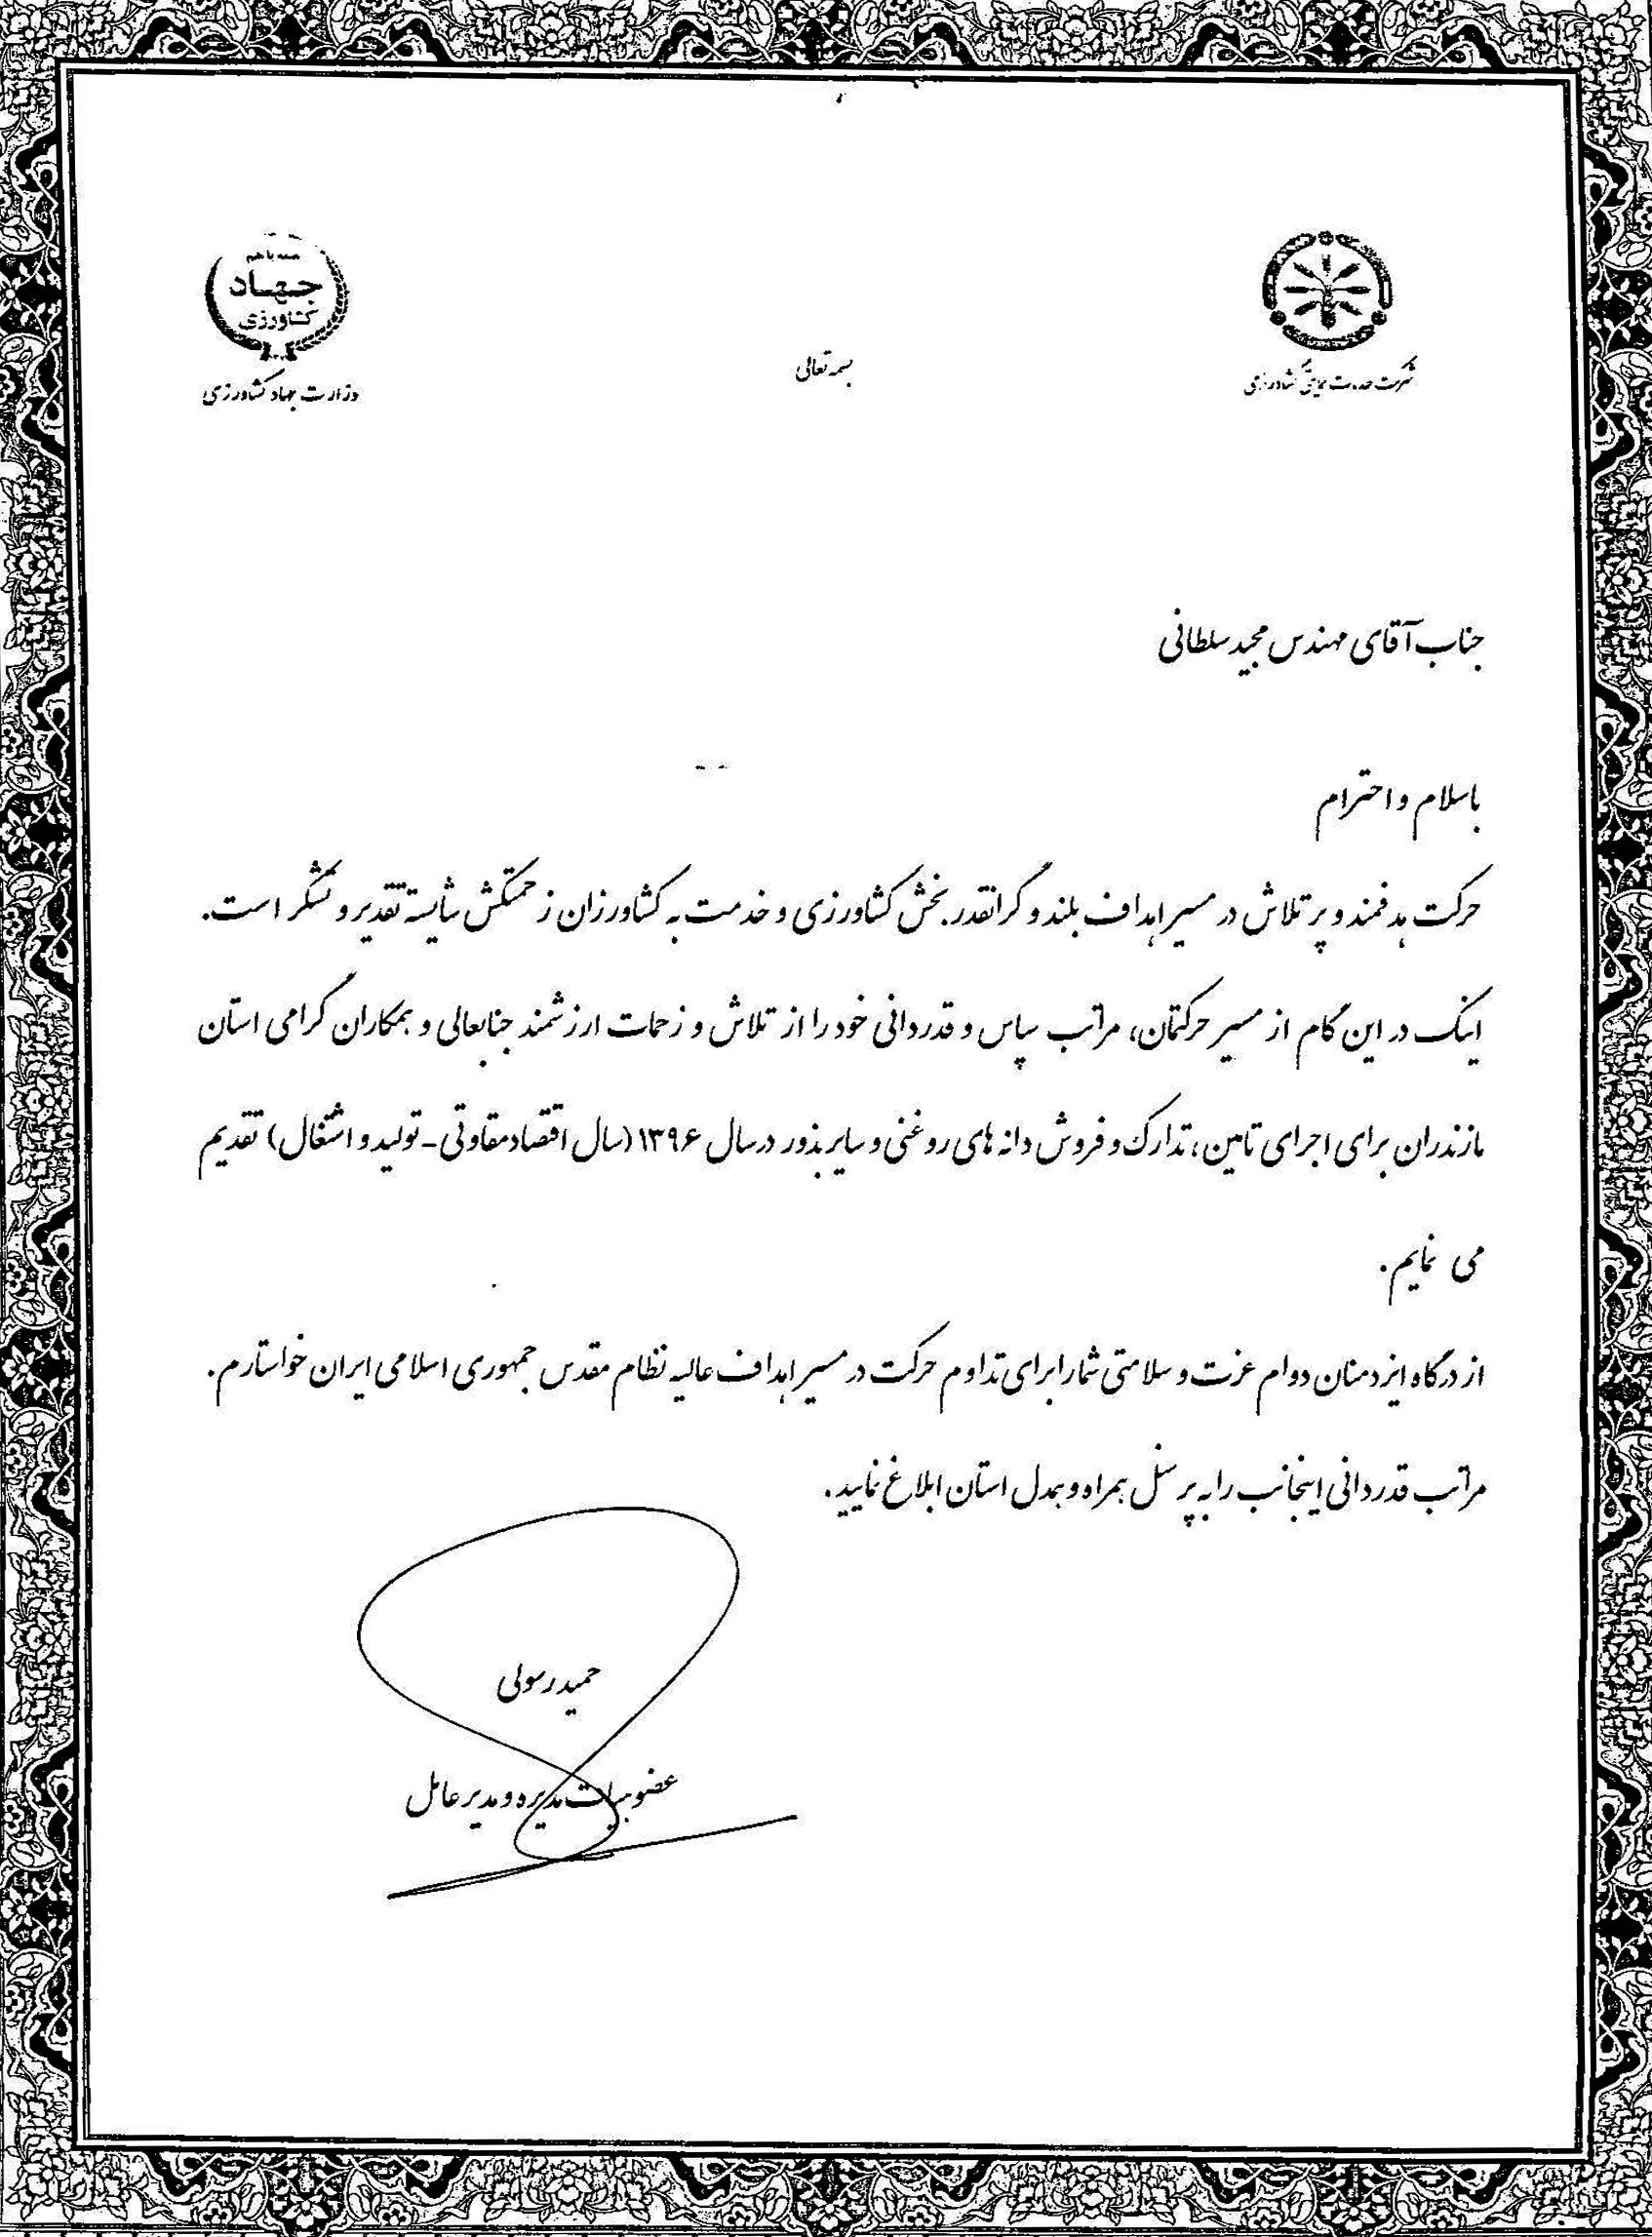 شرکت خدمات حمایتی کشاورزی
بسمه تعالی
همه با هم
جهاد
کشاورزی
وزارت جهاد کشاورزی
جناب آقای مهندس مجید سلطانی
باسلام و احترام
حرکت هدفمند و پر تلاش در مسیر اهداف بلند و گرانقدر بخش کشاورزی و خدمت به کشاورزان زحمتکش شایسته تقدیر و تشکر است.
اینک در این گام از مسیر حرکتمان، مراتب سپاس و قدردانی خود را از تلاش و زحمات ارزشمند جنابعالی و همکاران گرامی استان
مازندران برای اجرای تامین، تدارک و فروش دانه های روغنی و سایر بذور در سال ۱۳۹۶ (سال اقتصاد مقاوتی - تولید و اشتغال) تقدیم
می نمایم.
از درگاه ایزد منان دوام عزت و سلامتی شما را برای تداوم حرکت در مسیر اهداف عالیه نظام مقدس جمهوری اسلامی ایران خواستارم.
مراتب قدردانی اینجانب را به پرسنل همراه و همدل استان ابلاغ نمایید.
حمید رسولی
عضو هیات مدیره و مدیر عامل